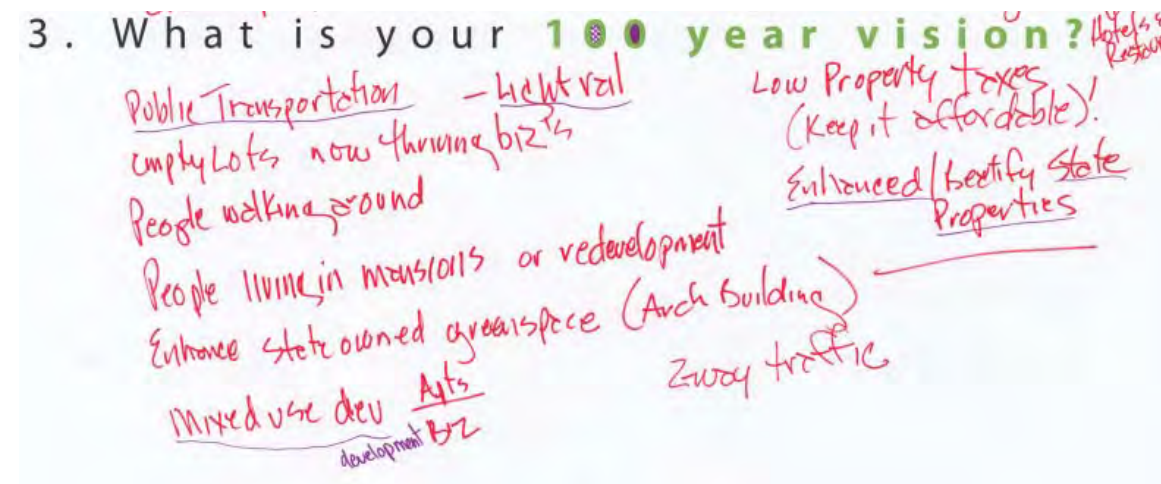 3. What is your 100 year vision?
Hotels &
Public Transportation - Light rail
empty Lots now thriving biz's
People walking around
People living in mansions or redevelopment
Enhance state owned greenspace (Arch Building)
Mixed use dev Apts
development Biz
Low Property taxes
(Keep it affordable)!
Enhanced/beetify State
Properties
2way traffic